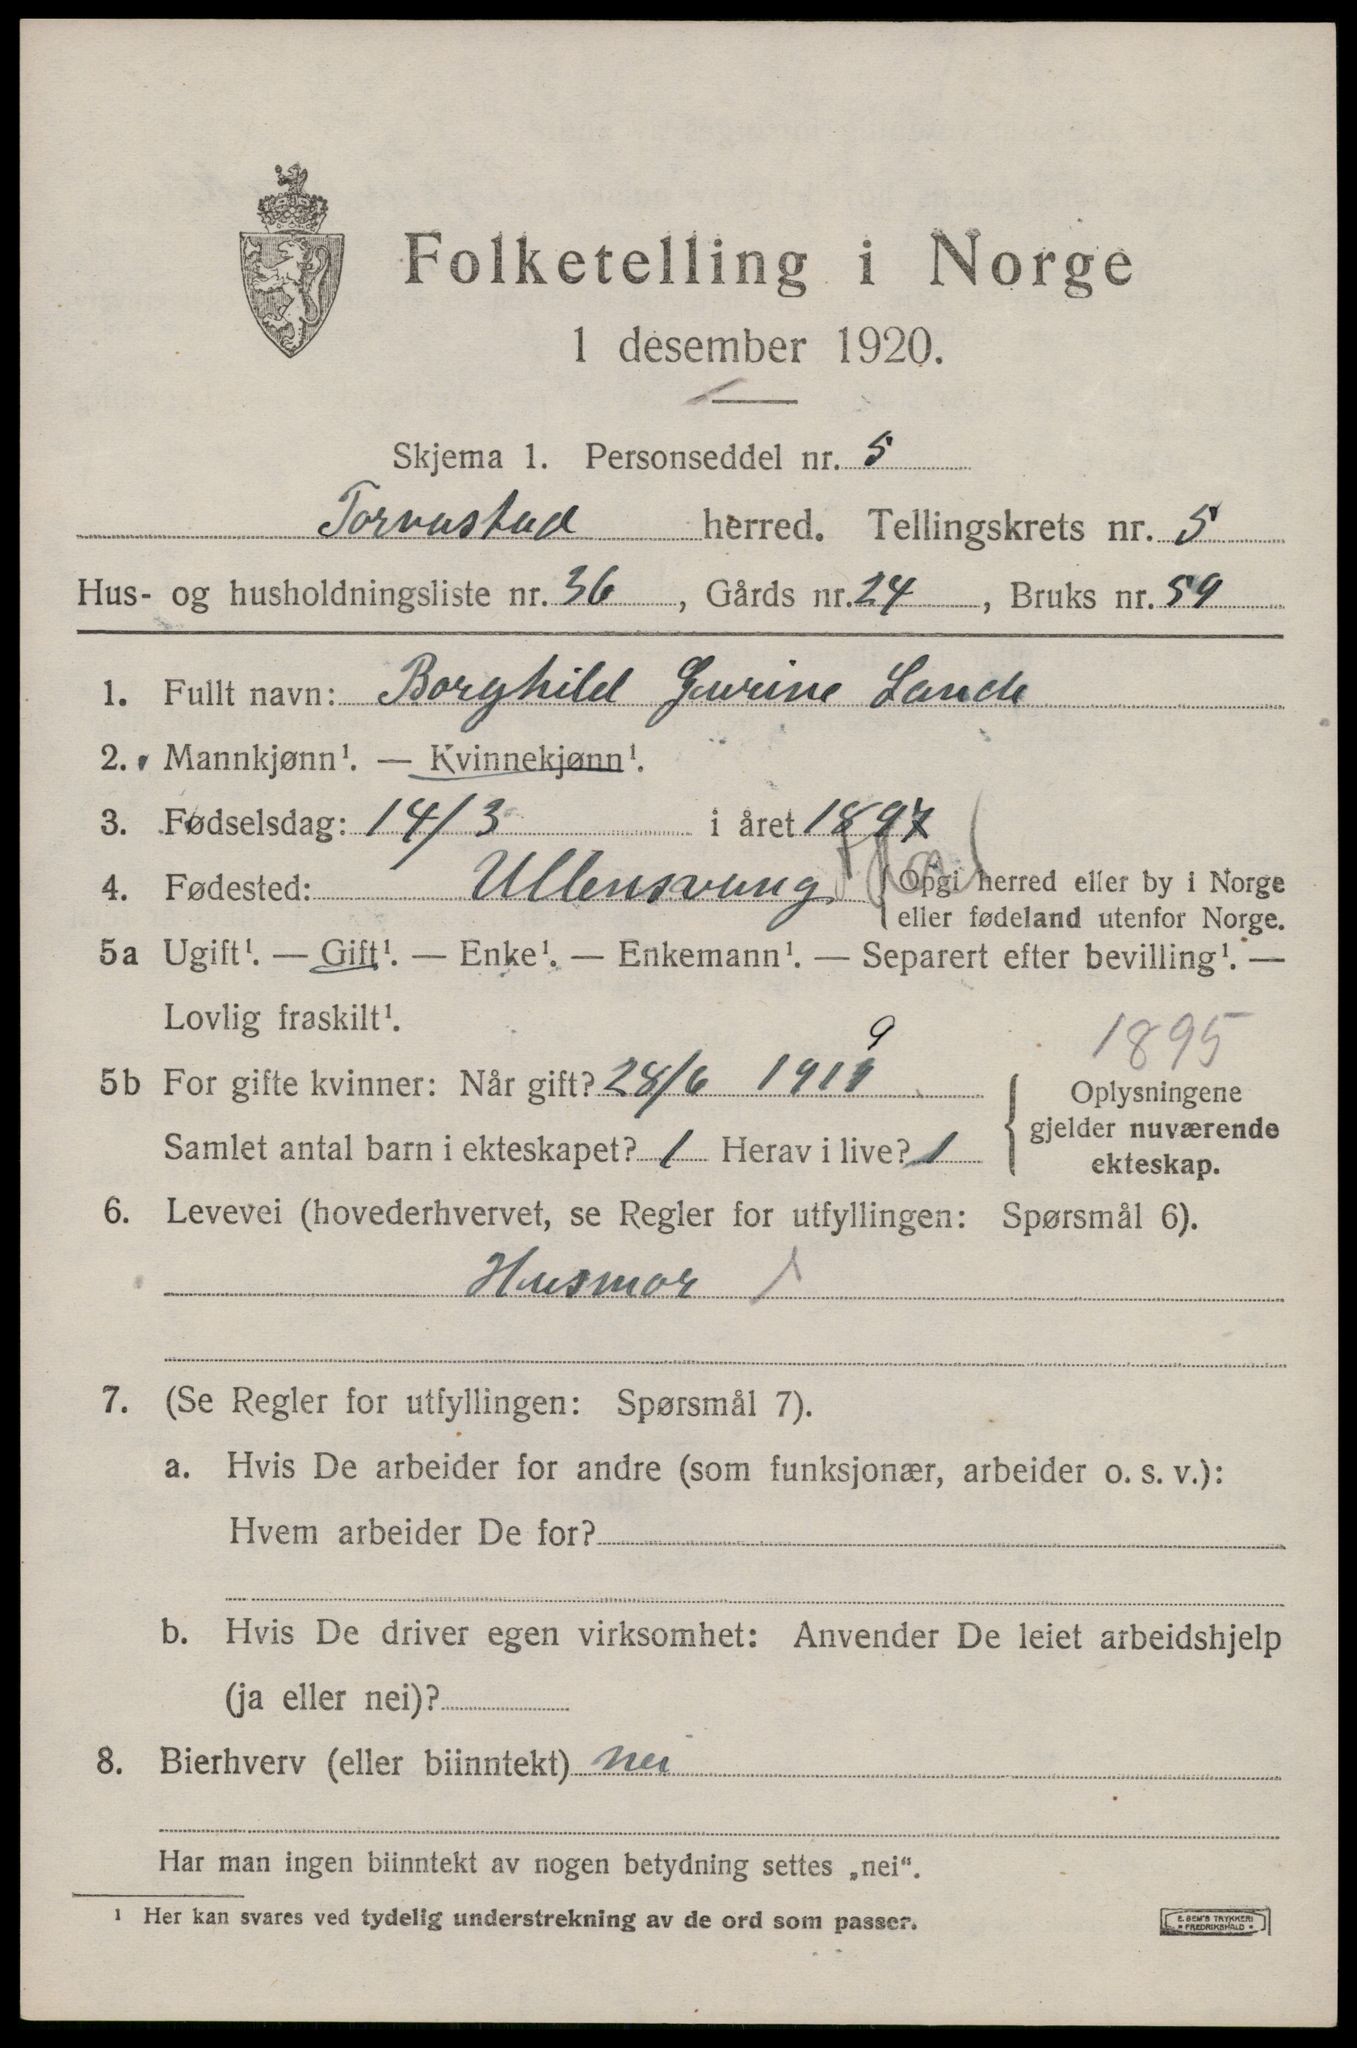 Folketelling i Norge
1 desember 1920.
Skjema 1. Personseddel nr. 5
Torvastad herred. Tellingskrets nr. 5
Hus- og husholdningsliste nr. 36, Gårds nr. 24, Bruks nr. 59
1. Fullt navn: Borghild Gurine Lande
2. Mannkjønn¹. — Kvinnekjønn¹.
3. Fødselsdag: 14/3 i året 1897
4. Fødested: Ullensvang Opgi herred eller by i Norge
eller fødeland utenfor Norge.
5a Ugift¹. — Gift¹. — Enke¹. — Enkemann¹. — Separert efter bevilling¹. —
Lovlig fraskilt¹.
1895
9
5b For gifte kvinner: Når gift? 28/6 191 Oplysningene
gjelder nuværende
Samlet antal barn i ekteskapet? 1 Herav i live? 1 ekteskap.
6. Levevei (hovederhvervet, se Regler for utfyllingen: Spørsmål 6).
Husmor
7. (Se Regler for utfyllingen: Spørsmål 7).
a. Hvis De arbeider for andre (som funksjonær, arbeider o. s. v.):
Hvem arbeider De for?
b. Hvis De driver egen virksomhet: Anvender De leiet arbeidshjelp
(ja eller nei)?
8. Bierhverv (eller biinntekt) nei
Har man ingen biinntekt av nogen betydning settes „nei“.
¹ Her kan svares ved tydelig understrekning av de ord som passer.
E. SEM'S TRYKKERI
FREDRIKSHALD